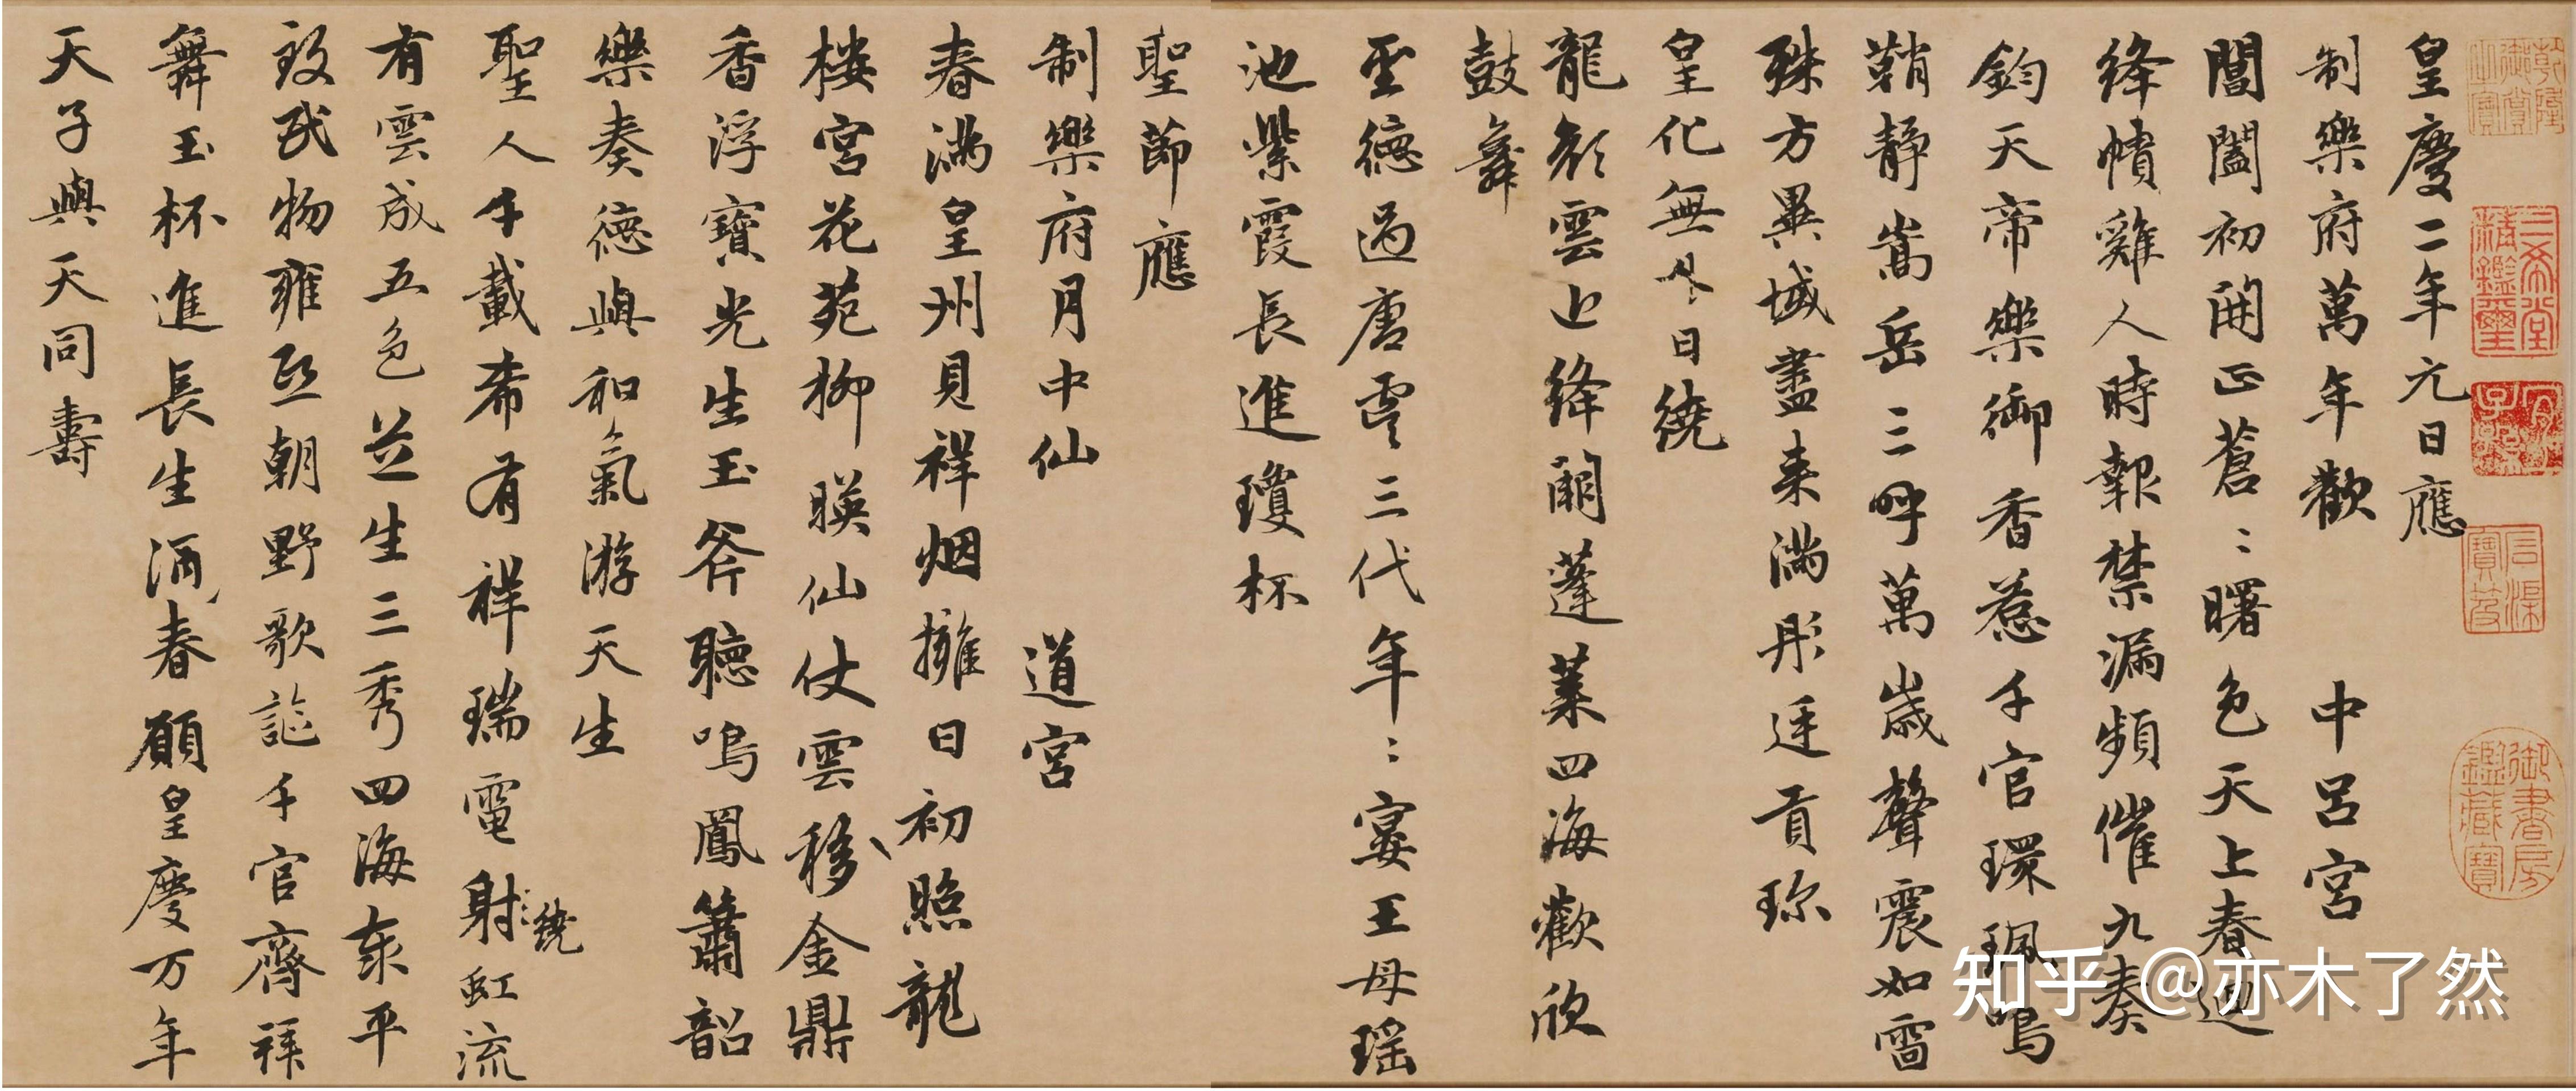 皇慶二年元日應
制樂府萬年歡 中呂宮
閶闔初開正蒼〻曙色天上春迴
絳幘雞人時報禁漏頻催九奏
鈞天帝樂御香惹千官環珮鳴
鞘靜嵩岳三呼萬歲聲震如雷
殊方異域盡来滿彤廷貢珎
皇化無外日繞
龍顏雲上絳闕蓬萊四海歡欣
鼓舞
聖德過唐虞三代年〻宴王母瑶
池紫霞長進瓊杯
聖節應
制樂府月中仙 道宮
春滿皇州見祥烟擁日初照龍
楼宮花苑柳暎仙仗雲移金鼎
香浮寶光生玉斧聽鳴鳳簫韶
樂奏德與和氣游天生
聖人千載希有祥瑞電射虹流
繞
有雲成五色並生三秀四海泰平
致民物雍熙朝野歌謳千官齊拜
舞玉杯進長生酒春願皇慶万年
天子與天同壽
乾隆御賞之寶
三希堂精鑑璽
宜子孫
石渠寶笈
御書房鑑藏寶
知乎 @亦木了然